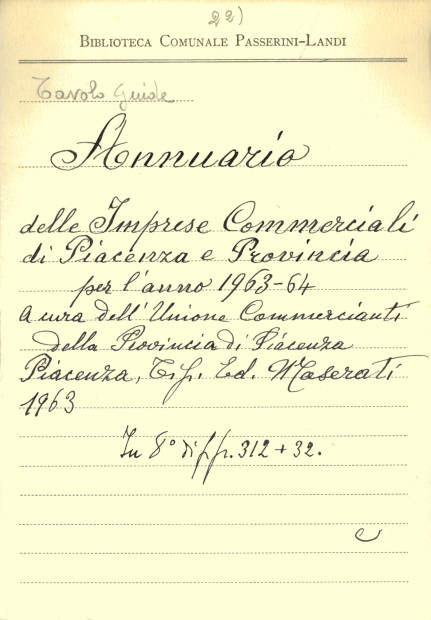 22)
BIBLIOTECA COMUNALE PASSERINI-LANDI
Tavolo Guide
Annuario
delle Imprese Commerciali
di Piacenza e Provincia
per l'anno 1963-64
a cura dell'Unione Commercianti
della Provincia di Piacenza
Piacenza, Tip. Ed. Maserati
1963
In 8° di pp. 312 + 32.
C